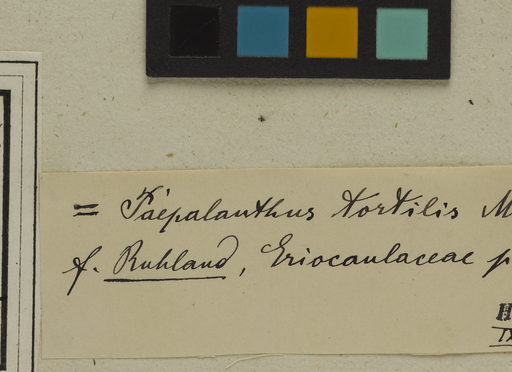 = Paepalanthus tortilis M
f. Ruhland, Eriocaulaceae p
H